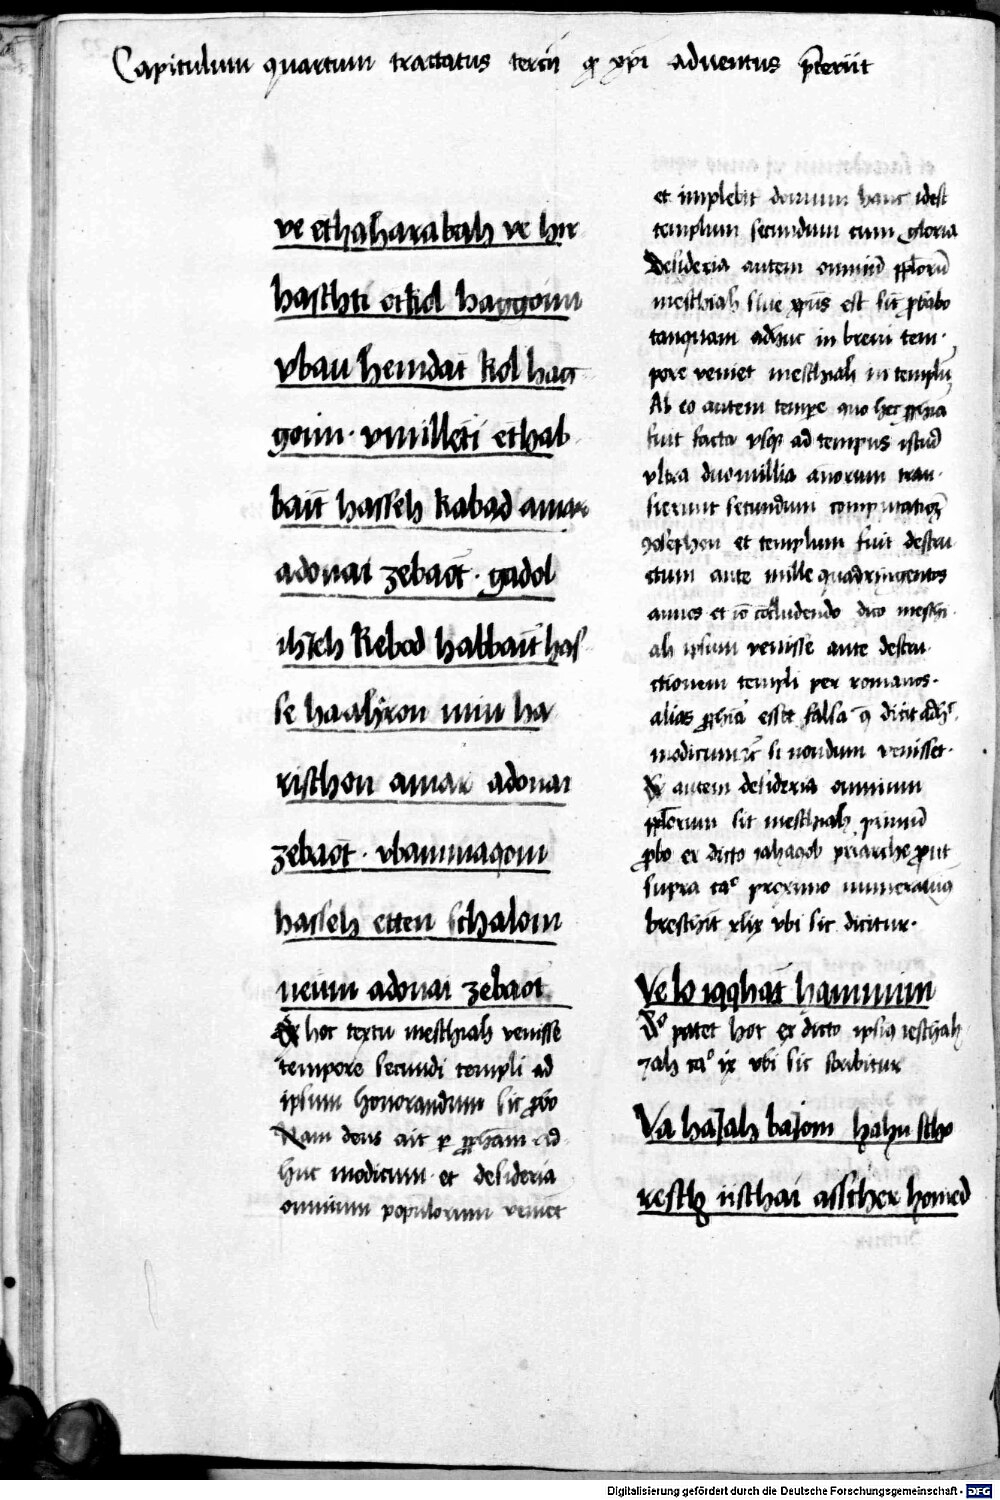 Capitulum quartum tractatus tercii qͦ xp̄i aduentus p̄teriit
ve ethaharabah ve hir
hasthti etkol haggoim
vbau hemdat kol hag
goim · vmilleti ethab
bait hasseh kabad amar
adonai zebaot · gadol
ihieh kebod habbait has
se haahron min ha
risthon amar adonai
zebaot · vbammaqom
hasseh etten schalom
neum adonai zebaot
Ex hoc textu mesthiah venisse
tempore secundi templi ad
ipsum honorandum sic ꝓbo
Nam deus ait ꝑ ꝓph̄am ad
huc modicum et desideria
omnium populorum veniet
et implebit domum hanc idest
templum secundum cum gloria
desideria autem omniū pp̄lorū
mesthiah siue xp̄us est sic ꝓbabo
tanquam adhuc in breui tem·
pore veniet mesthiah in templū
Ab eo autem tempore quo hec ꝓph̄ia
fuit facta vsqꝫ ad tempus istud
vltra duomillia annorum tran·
sierunt secundum computationē
iosephon et templum fuit destru
ctum ante mille quadringentos
annos et iō cōcludendo dico mesthi·
ah ipsum venisse ante destru·
ctionem templi per romanos·
alias ꝓph̄ia esset falsa q̄ dicit adhᶜ
modicum ⁊c̄ si nondum venisset·
Qͩ autem desideria omnium
pp̄lorum sit mesthiah primū
ꝓbo ex dicto iahaqob p̄riarche ꝓut
supra caᵒ proximo numerauimꝰ
bresthit xlix vbi sic dicitur·
Ve lo iqqhat hammim
2ͦ patet hoc ex dicto ipsiꝰ iesthah
zah caᵒ ix vbi sic scribitur
Va haiah baiom hahu scho
resth iisthai asscher homed
Digitalisierung gefördert durch die Deutsche Forschungsgemeinschaft - DFG